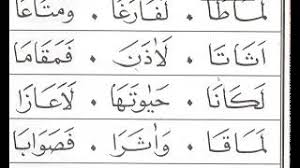 لَمَاطَا • لَفَارِغَا • وَمَتَاعَا
اَثَاثَا • لَاَذَنَ • فَمَقَامَا
لَكَانَا • حَيٰوتَهَا • لَاعَازَا
لَمَاقَا • وَاَثَرَا • فَصَوَابَا